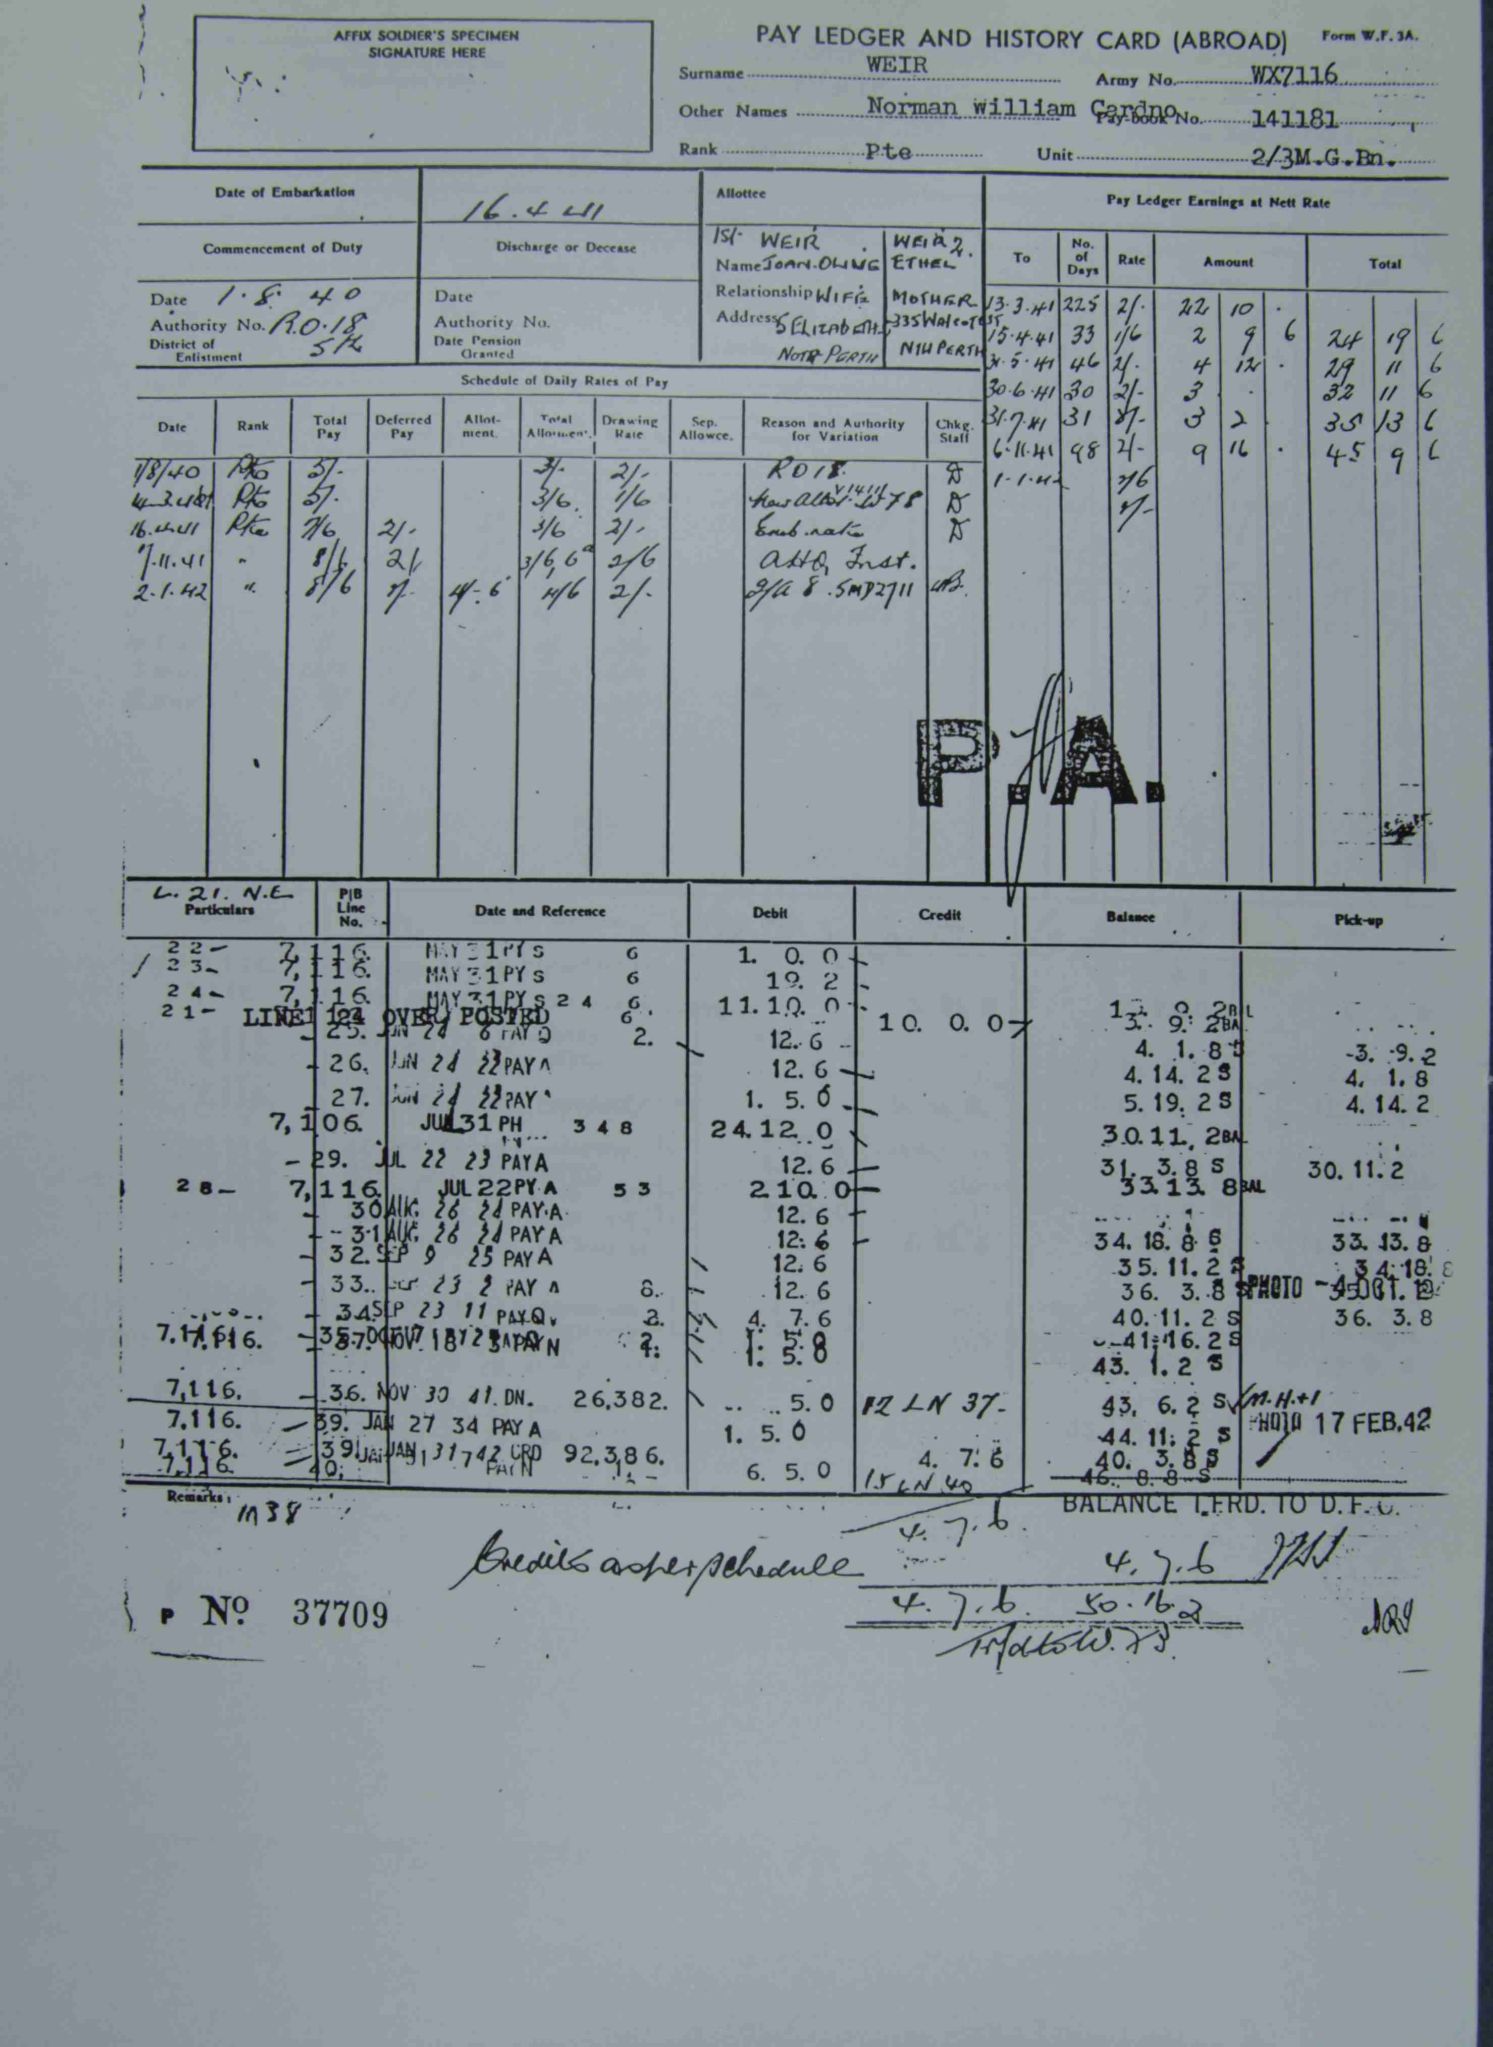 AFFIX SOLDIER'S SPECIMEN
SIGNATURE HERE
PAY LEDGER AND HISTORY CARD (ABROAD) Form W.F. 3A.
Surname WEIR Army No. WX7116
Other Names Norman william Cardno Pay-book No. 141181
Rank Pte Unit 2/3M.G.Bn.
Date of Embarkation 16.4 41
Commencement of Duty Discharge or Decease
Date 1.8.40 Date
Authority No. R.O.18 Authority No.
District of Enlistment Date Pension Granted
Allottee
1st WEIR WEIR 2.
Name JOAN ETHEL
Relationship WIFE MOTHER
Address 5 ELIZABETH 335 Walcot St
NORTH PERTH NTH PERTH
Pay Ledger Earnings at Nett Rate
To No. of Days Rate Amount Total
13.3.41 225 2/- 22 10 .
15.4.41 33 1/6 2 9 6 24 19 6
31.5.41 46 2/- 4 12 . 29 11 6
30.6.41 30 2/- 3 . . 32 11 6
31.7.41 31 2/- 3 2 . 35 13 6
6.11.41 98 2/- 9 16 . 45 9 6
1.1.42 2/6
2/-
Schedule of Daily Rates of Pay
Date Rank Total Pay Deferred Pay Allot-ment. Total Allotment. Drawing Rate Sep. Allowce. Reason and Authority for Variation Chkg. Staff
1/8/40 Pte 5/- 3/- 2/- RO18. D
Pte 5/- 3/6 1/6 D
16.4.41 Pte 7/6 2/- 3/6 2/- Emb. rate D
7.11.41 " 2/ 2/6 AHQ Inst.
2.1.42 " 8/6 2/- 4/6 2/-
P.A.
L. 21. N.E
Particulars P/B Line No. Date and Reference Debit Credit Balance Pick-up
22- 7,116. MAY 31 PY S 6 1. 0. 0
23- 7,116. MAY 31 PY S 6 19. 2
24- 7,116. MAY 31 PY S 24 6. 11.10. 0
21- LINE 24 OVER POSTED 6. 10. 0. 0 3. 9. 2BAL
- 25. JUN 24 6 PAY Q 2. 12. 6 4. 1. 8 S 3. 9. 2
- 26. JUN 24 22 PAY A 12. 6 4. 14. 2 S 4. 1. 8
- 27. JUN 24 22 PAY 1. 5. 0 5. 19. 2 S 4. 14. 2
7,106. JUL 31 PH 348 24.12. 0 30.11. 2BAL
- 29. JUL 22 23 PAY A 12. 6 31. 3. 8 S 30. 11. 2
28- 7,116. JUL 22 PY A 53 2.10. 0 33.13. 8BAL
30 AUG. 26 24 PAY A 12. 6
- 31 AUG. 26 24 PAY A 12. 6 34. 18. 8 S 33. 13. 8
- 32. SEP 9 25 PAY A 12. 6 35. 11. 2 S 34. 18. 8
- 33. SEP 23 2 PAY A 8. 12. 6 36. 3. 8 S PHOTO - 4 OCT
- 34. SEP 23 11 PAY Q. 4. 7. 6 40. 11. 2 S 36. 3. 8
7.116. - 35. OCT 1. 5. 0 41. 16. 2 S
7.116. 37. NOV. 18 PAY N 1. 5. 0 43. 1. 2 S
7,116. - 36. NOV 30 41. DN. 26,382. 5. 0 12 LN 37- 43. 6. 2 S
7.116. - 39. JAN 27 34 PAY A 1. 5. 0 44. 11. 2 S PHOTO 17 FEB. 42
7,116. 39. JAN 31 742 CRD 92,386. 4. 7. 6 40. 3. 8 S
7.116. 40. PAY N 6. 5. 0 15 LN 40 46. 8. 8 S
Remarks: m38 BALANCE T.FRD. TO D.F.O.
4. 7. 6.
Credits as per schedule 4. 7. 6
4. 7. 6. 50. 16. 2
P No. 37709